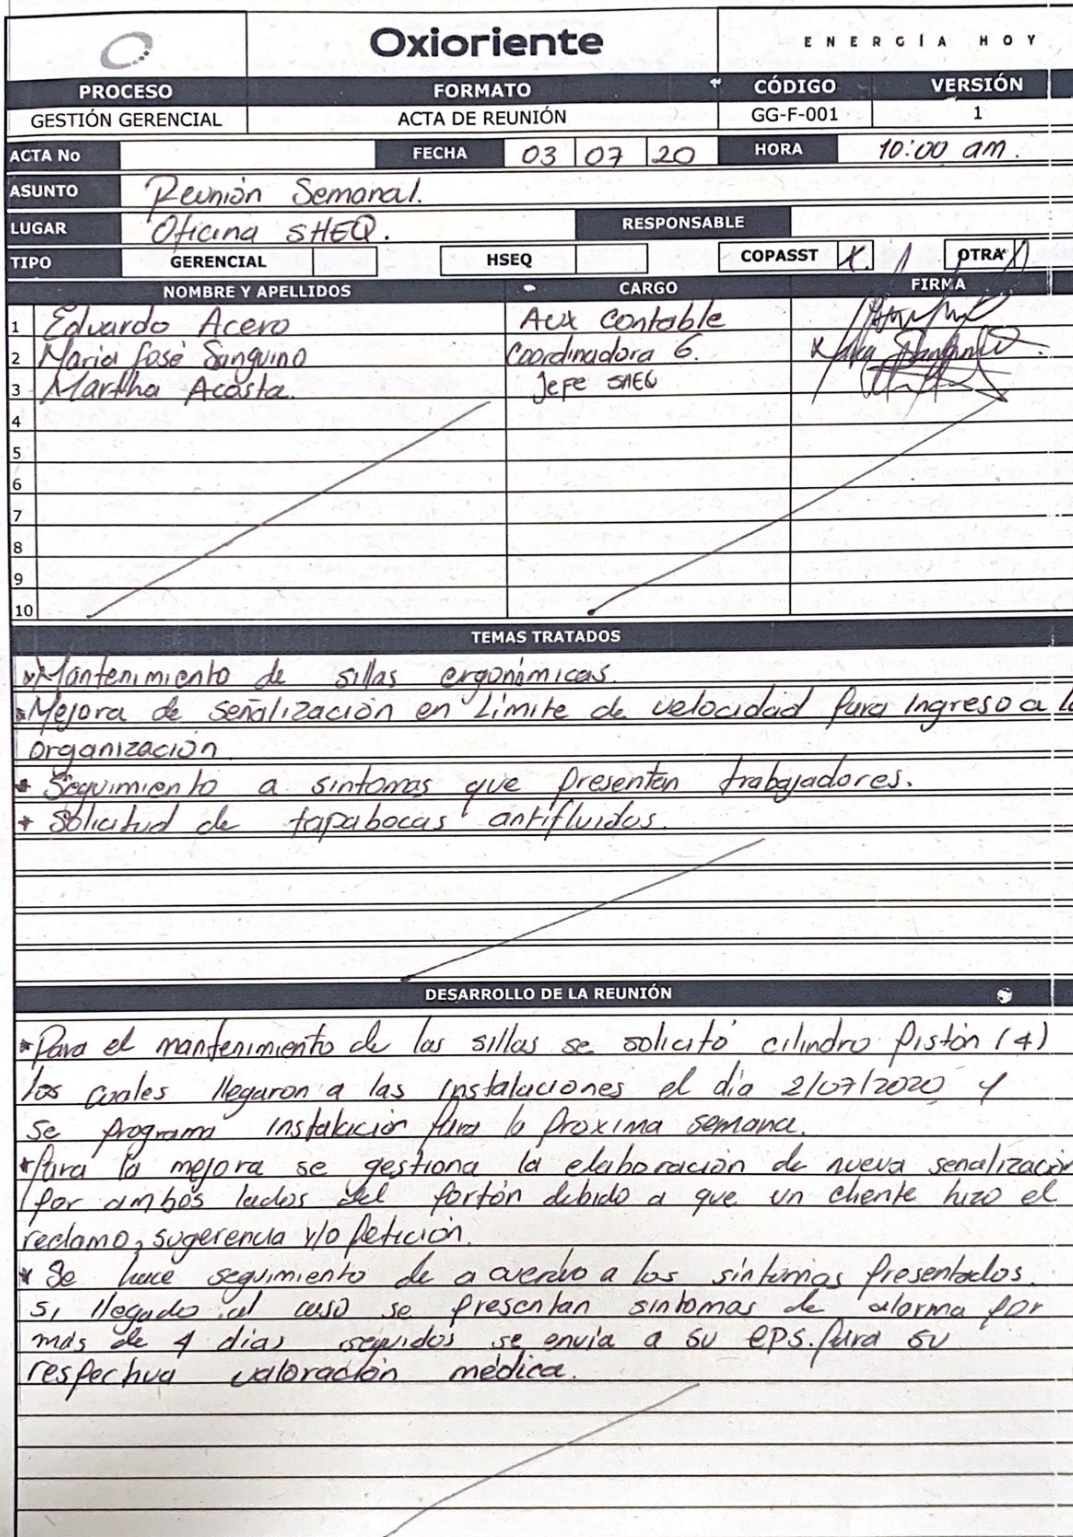 Oxioriente
ENERGÍA HOY
PROCESO FORMATO CÓDIGO VERSIÓN
GESTIÓN GERENCIAL ACTA DE REUNIÓN GG-F-001 1
ACTA No FECHA 03 07 20 HORA 10:00 am.
ASUNTO Reunión Semanal.
LUGAR Oficina SHEQ. RESPONSABLE
TIPO GERENCIAL HSEQ COPASST X OTRA
NOMBRE Y APELLIDOS CARGO FIRMA
1 Eduardo Acero Aux Contable
2 Maria José Sanguino Coordinadora G.
3 Martha Acosta. Jefe
4
5
6
7
8
9
10
TEMAS TRATADOS
* Mantenimiento de sillas ergonómicas.
* Mejora de señalización en Límite de velocidad para Ingreso a la
organización
* Seguimiento a sintomas que Presentan trabajadores.
* Solicitud de tapabocas antifluidos.
DESARROLLO DE LA REUNIÓN
* Para el mantenimiento de las sillas se solicitó cilindro Pistón (4)
los cuales llegaron a las Instalaciones el día 2/07/2020 y
se programa instalación para la Próxima semana.
* Para la mejora se gestiona la elaboración de nueva señalización
por ambos lados del portón debido a que un cliente hizo el
reclamo, sugerencia y/o Petición.
* Se hace seguimiento de a cuerdo a los síntomas Presentados.
si llegado al caso se Presentan sintomas de alarma por
mas de 4 dias seguidos se envia a su eps. Para su
respectiva valoración médica.